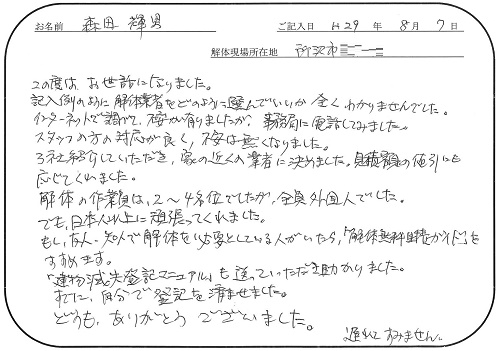 お名前 森田 輝男 ご記入日 H29 年 8 月 7 日
解体現場所在地 所沢市
この度は、お世話になりました。
記入例のように解体業者をどのように選んでいいか全くわかりませんでした。
インターネットで調べて、不安が有りましたが、事務局に電話してみました。
スタッフの方の対応が良く、不安は無くなりました。
3社紹介していただき、家の近くの業者に決めました。見積額の値引にも
応じてくれました。
解体の作業員は、2〜4名位でしたが、全員外国人でした。
でも、日本人以上に頑張ってくれました。
もし、友人、知人で解体を必要としている人がいたら、「解体無料見積ガイド」を
すすめます。
「建物滅失登記マニュアル」も送っていただき助かりました。
すでに、自分で登記を済ませました。
どうも、ありがとうございました。
遅れてすみません。